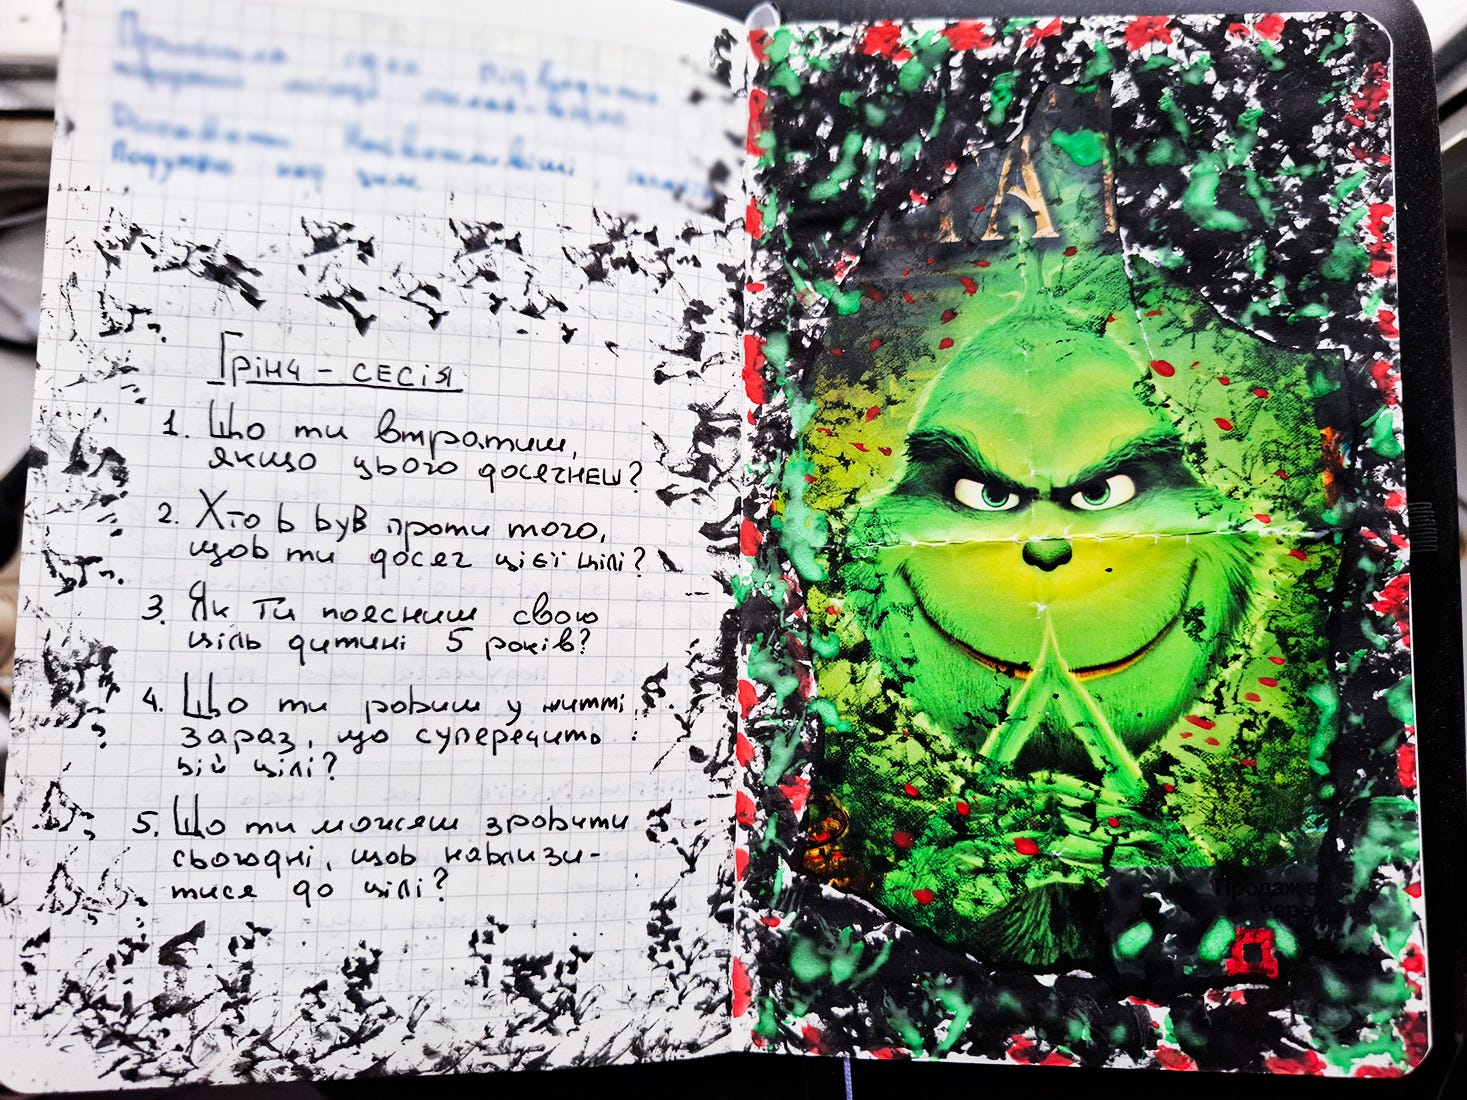 Грінч - сесія
1. Що ти втратиш,
якщо цього досягнеш?
2. Хто б був проти того,
щоб ти досяг цієї цілі?
3. Як ти поясниш свою
ціль дитині 5 років?
4. Що ти робиш у житті
зараз, що суперечить
цій цілі?
5. Що ти можеш зробити
сьогодні, щоб наблизи-
тися до цілі?
Продаж
через